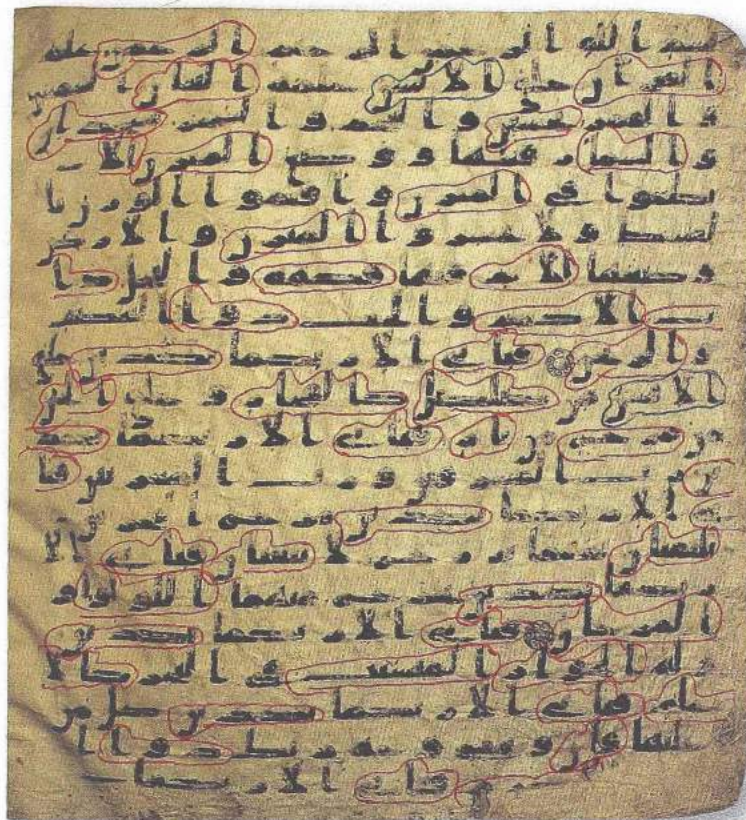 بسم الله الرحمن الرحيم الرحمن علم
القران خلق الانسن علمه البيان الشمس
و القمر بحسبن و النجم و الشجر يسجدان
و السما رفعها و وضع الميزن الا
تطغوا في الميزن و اقيموا الوزن با
لقسط و لا تخسروا الميزن و الارض
وضعها للانم فيها فكهة و النخل ذا
ت الاكمم و الحب ذوا العصف
و الريحن فباي الا ربكما تكذبن خلق
الانسن من صلصل كالفخار و خلق الجن
من مرج من نار فباي الا ربكما تكذ
بن رب المشرقين و رب المغربين فبا
ي الا ربكما تكذبن مرج البحرين
يلتقيان بينهما برزخ لا يبغيان فباي الا
ربكما تكذبن يخرج منهما اللولو و
المرجان فباي الا ربكما تكذبن
وله الجوار المنشت في البحر كالا
علم فباي الا ربكما تكذبن كل من
عليها فان و يبقى وجه ربك ذوا ال
فباي الا ربكما